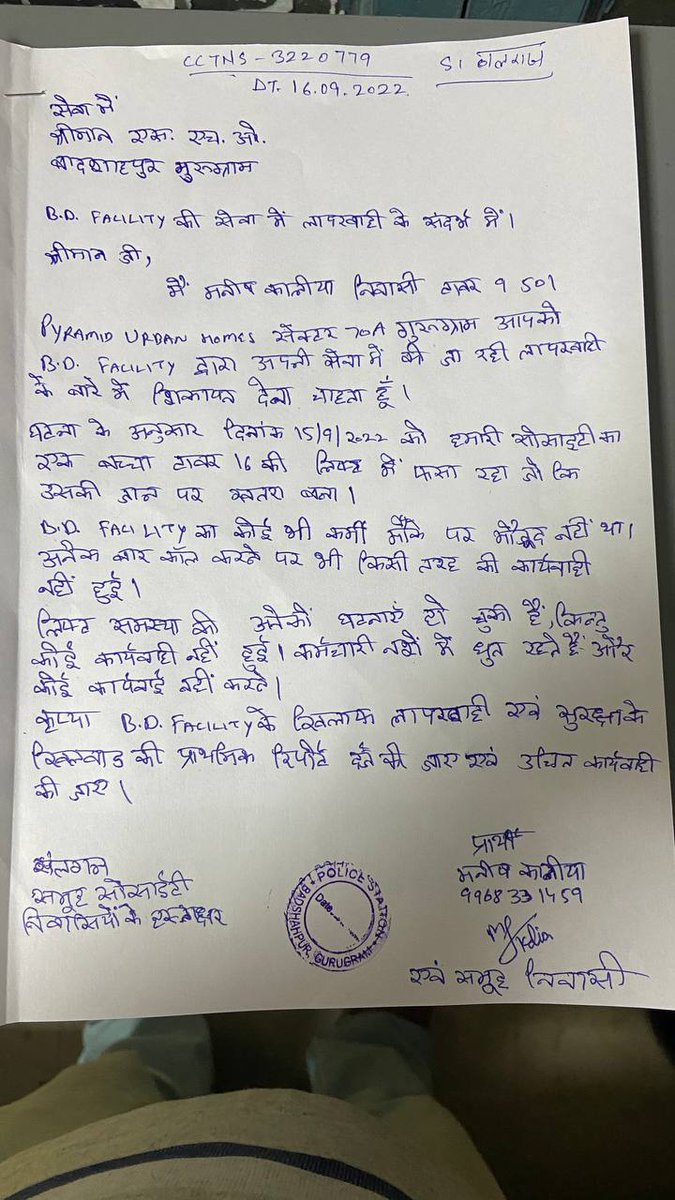 CCTNS - 3220779
SI बलराज
DT. 16.09.2022
सेवा में
श्रीमान एस. एच. ओ.
बादशाहपुर गुरुग्राम
B.D. FACILITY की सेवा में लापरवाही के संदर्भ में।
श्रीमान जी,
मैं मनीष कालीया निवासी टावर 9 501
PYRAMID URBAN HOMES सेक्टर 70A गुरुग्राम आपको
B.D. FACILITY द्वारा अपनी सेवा में की जा रही लापरवाही
के बारे में शिकायत देना चाहता हूँ।
घटना के अनुसार दिनांक 15/9/2022 को हमारी सोसाइटी का
एक बच्चा टावर 16 की लिफ्ट में फसा रहा जो कि
उसकी जान पर खतरा बना।
B.D. FACILITY का कोई भी कर्मी मौके पर मौजूद नहीं था।
अनेक बार कॉल करने पर भी किसी तरह की कार्यवाही
नहीं हुई।
लिफ्ट समस्या की अनेकों घटनाएं हो चुकी हैं, किन्तु
कोई कार्यवाही नहीं हुई। कर्मचारी नशे में धुत रहते हैं और
कोई कार्यवाई नहीं करते।
कृप्या B.D. FACILITY के खिलाफ लापरवाही एवं सुरक्षा के
खिलवाड की प्राथमिक रिपोर्ट दर्ज की जाए एवं उचित कार्यवाही
की जाए।
प्रार्थी
संलगन
मनीष कालीया
समूह सोसाईटी
9968331459
निवासियों के हस्ताक्षर
POLICE STATION
Date
BADSHAHPUR, GURUGRAM
एवं समूह निवासी